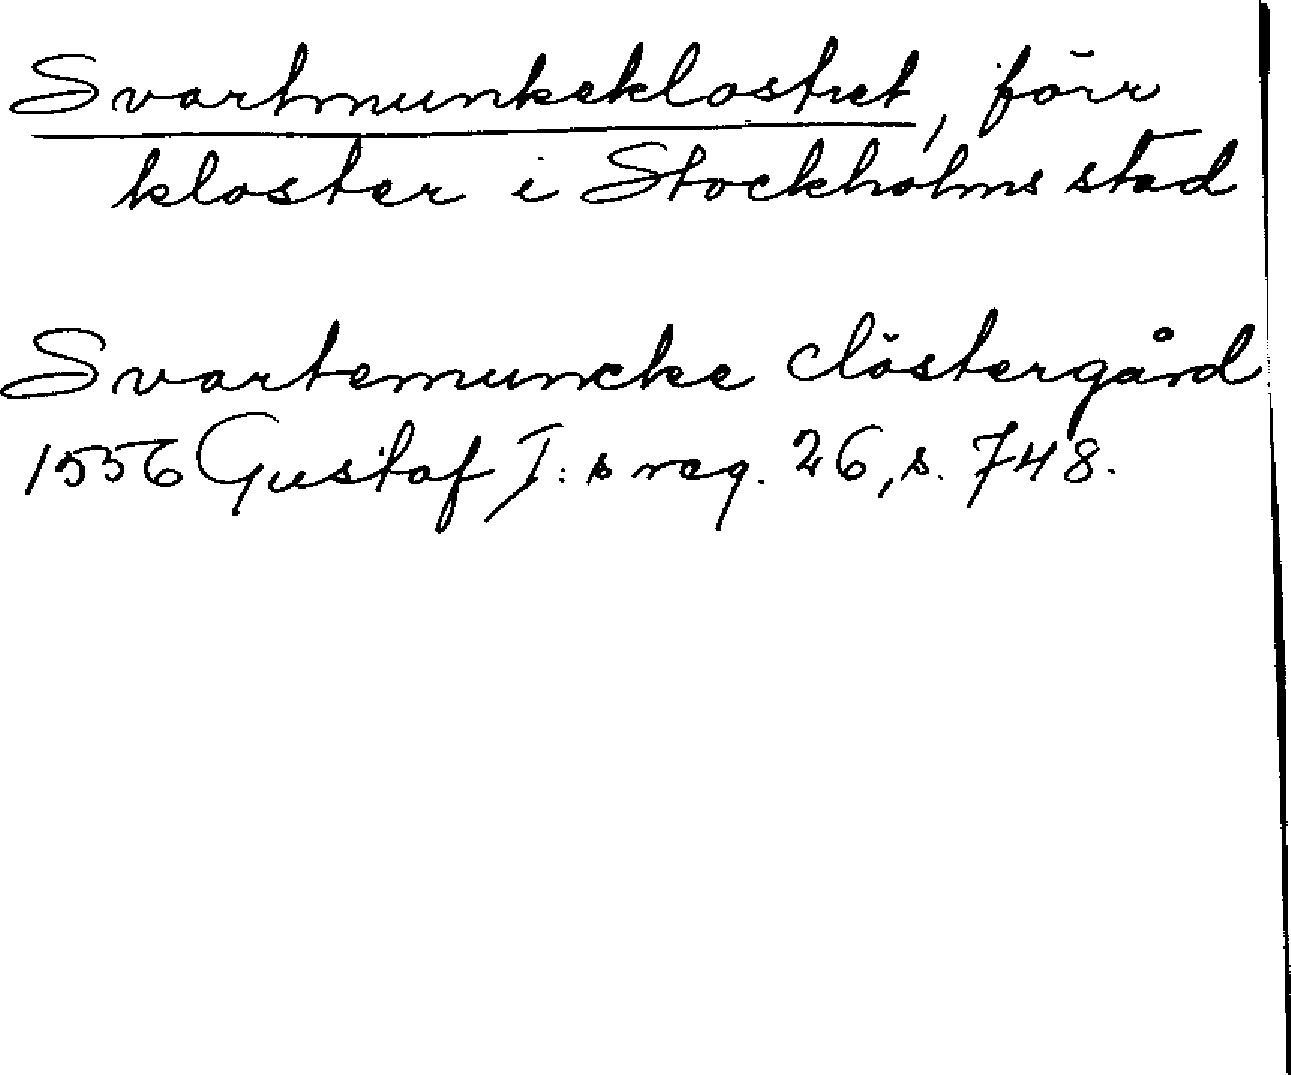 Svartmunkeklostret, förr
kloster i Stockholms stad
Svartemuncke clöstergård
1556 Gustaf I:s reg. 26, s. 748.